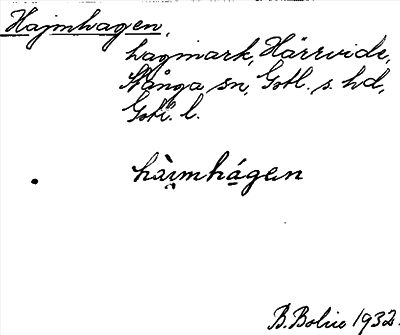 Hajmhagen,
hagmark, Härrvide,
Stånga sn, Gotl. s. hd,
Gotl. l.
hàı̯mhágen
B. Bolin 1932.